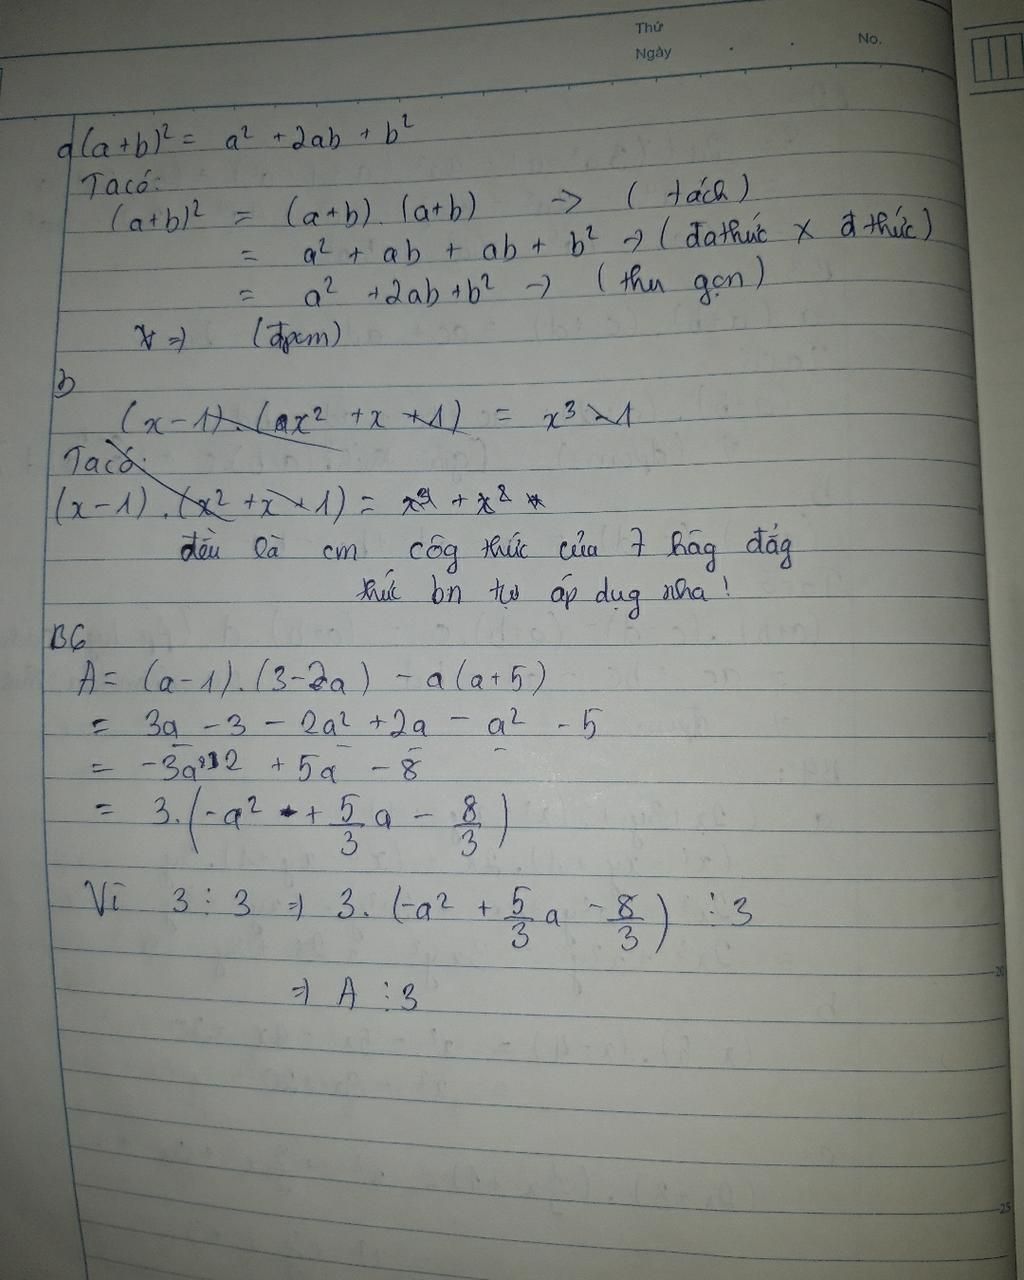 Thứ
Ngày . . No.
a (a+b)² = a² + 2ab + b²
Ta có:
(a+b)² = (a+b). (a+b) → ( tách )
= a² + ab + ab + b² → ( đa thức x đ thức )
= a² + 2ab + b² → ( thu gọn )
⇒ (đpcm)
b
(x-1).(x² + x + 1) = x³ - 1
Ta có:
(x-1).(x² + x + 1) = x³ + x²
đều là cm côg thức của 7 hăg đảg
thức bn tự áp dụg nha !
B6
A = (a-1).(3-2a) - a(a+5)
= 3a - 3 - 2a² + 2a - a² - 5
= -3a² + 5a - 8
= 3.(-a² + 5/3 a - 8/3)
Vì 3 ⋮ 3 ⇒ 3. (-a² + 5/3 a - 8/3) ⋮ 3
⇒ A ⋮ 3
20
25